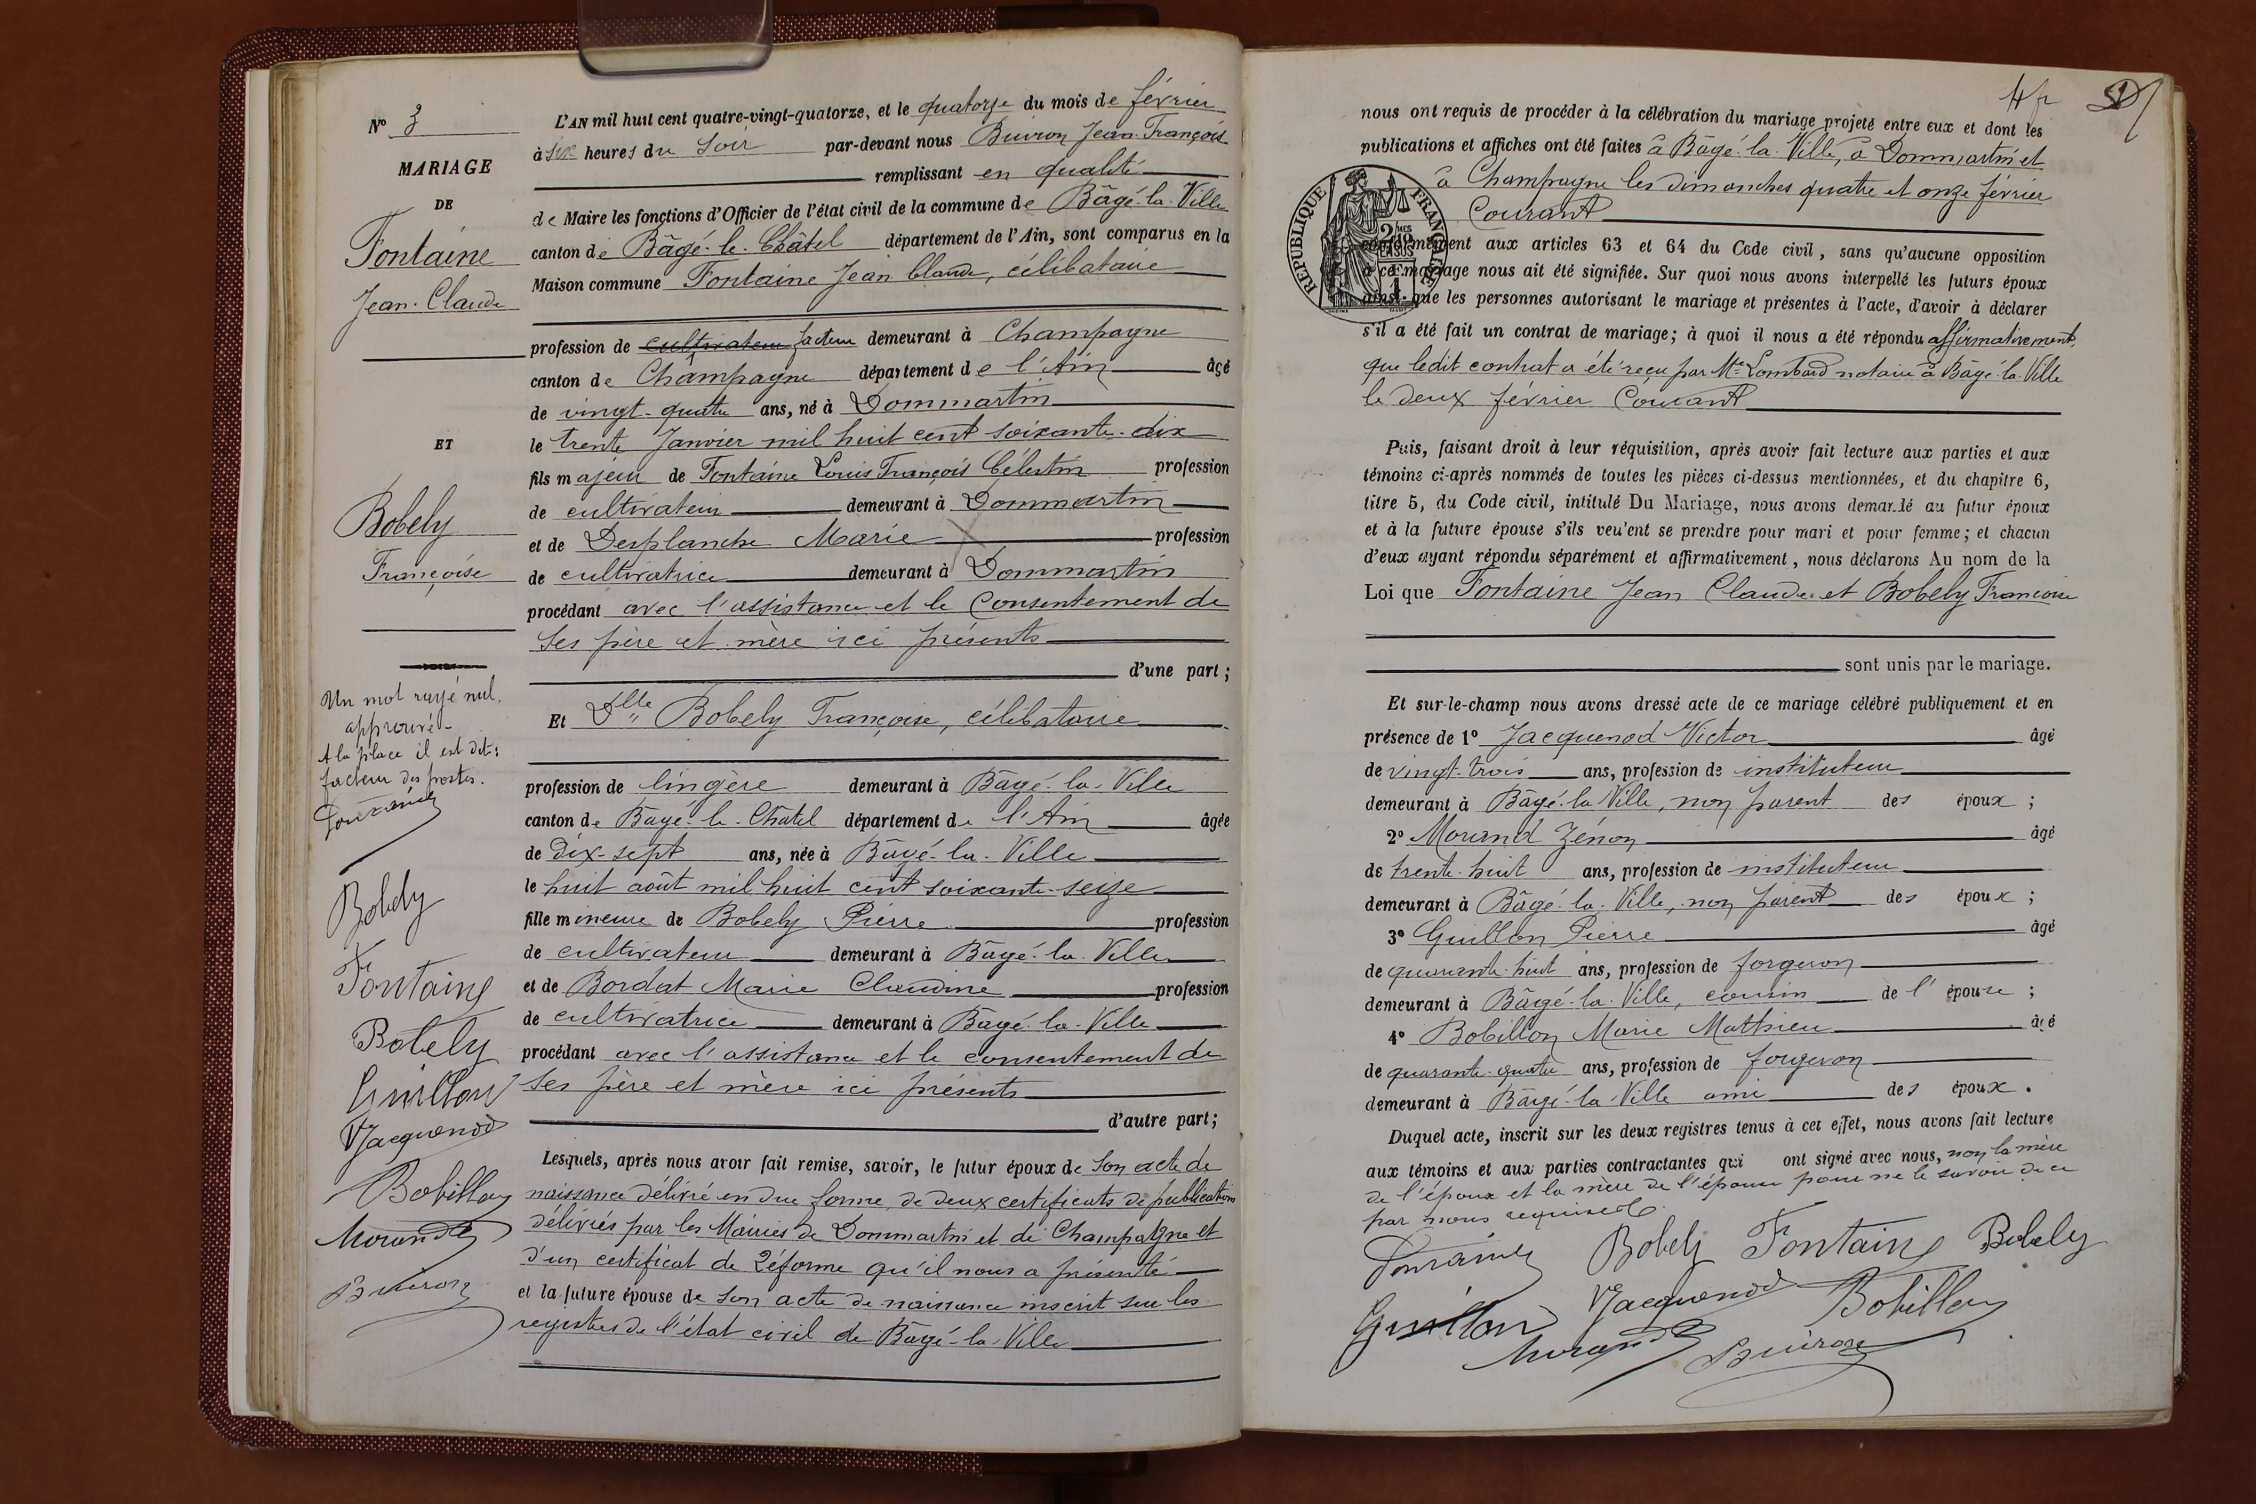 N° 3
MARIAGE
DE
Fontaine
Jean-Claude
ET
Bobely
Françoise
Un mot rayé nul.
approuvé.
A la place il est dit :
facteur des postes.
Fontaine
Bobely
Fontaine
Bobely
Guillon
VJacquenod
Bobillon
Morand
Buiron
L'AN mil huit cent quatre-vingt-quatorze, et le quatorze du mois de février
à six heures du soir par-devant nous Buiron Jean-François
remplissant en qualité
de Maire les fonctions d'Officier de l'état civil de la commune de Bâgé-la-Ville
canton de Bâgé-le-Châtel département de l'Ain, sont comparus en la
Maison commune Fontaine Jean Claude, célibataire
profession de cultivateur facteur demeurant à Champagne
canton de Champagne département de l'Ain âgé
de vingt-quatre ans, né à Dommartin
le trente Janvier mil huit cent soixante-dix
fils majeur de Fontaine Louis François Célestin profession
de cultivateur demeurant à Dommartin
et de Desplanche Marie profession
de cultivatrice demeurant à Dommartin
procédant avec l'assistance et le consentement de
ses père et mère ici présents
d'une part ;
Et Dlle Bobely Françoise, célibataire
profession de lingère demeurant à Bâgé-la-Ville
canton de Bâgé-le-Châtel département de l'Ain âgée
de dix-sept ans, née à Bâgé-la-Ville
le huit août mil huit cent soixante-seize
fille mineure de Bobely Pierre profession
de cultivateur demeurant à Bâgé-la-Ville
et de Bordat Marie Claudine profession
de cultivatrice demeurant à Bâgé-la-Ville
procédant avec l'assistance et le consentement de
ses père et mère ici présents
d'autre part ;
Lesquels, après nous avoir fait remise, savoir, le futur époux de son acte de
naissance délivré en due forme, de deux certificats de publication
délivrés par les Mairies de Dommartin et de Champagne et
d'un certificat de réforme qu'il nous a présenté
et la future épouse de son acte de naissance inscrit sur les
registres de l'état civil de Bâgé-la-Ville
nous ont requis de procéder à la célébration du mariage projeté entre eux et dont les
publications et affiches ont été faites à Bâgé-la-Ville, à Dommartin et
à Champagne les dimanches quatre et onze février
Courant
RÉPUBLIQUE FRANÇAISE
2/10MES EN SUS
conformément aux articles 63 et 64 du Code civil, sans qu'aucune opposition
à ce mariage nous ait été signifiée. Sur quoi nous avons interpellé les futurs époux
ainsi que les personnes autorisant le mariage et présentes à l'acte, d'avoir à déclarer
s'il a été fait un contrat de mariage ; à quoi il nous a été répondu affirmativement,
que ledit contrat a été reçu par Me Lombard notaire à Bâgé-la-Ville
le deux février Courant
Puis, faisant droit à leur réquisition, après avoir fait lecture aux parties et aux
témoins ci-après nommés de toutes les pièces ci-dessus mentionnées, et du chapitre 6,
titre 5, du Code civil, intitulé Du Mariage, nous avons demandé au futur époux
et à la future épouse s'ils veulent se prendre pour mari et pour femme ; et chacun
d'eux ayant répondu séparément et affirmativement, nous déclarons Au nom de la
Loi que Fontaine Jean Claude et Bobely Françoise
sont unis par le mariage.
Et sur-le-champ nous avons dressé acte de ce mariage célébré publiquement et en
présence de 1° Jacquenod Victor âgé
de vingt-trois ans, profession de instituteur
demeurant à Bâgé-la-Ville, non parent des époux ;
2° Morand Zénon âgé
de trente-huit ans, profession de instituteur
demeurant à Bâgé-la-Ville, non parent des époux ;
3° Guillon Pierre âgé
de quarante-huit ans, profession de forgeron
demeurant à Bâgé-la-Ville, cousin de l'épouse ;
4° Bobillon Marie Mathieu âgé
de quarante-quatre ans, profession de forgeron
demeurant à Bâgé-la-Ville ami des époux.
Duquel acte, inscrit sur les deux registres tenus à cet effet, nous avons fait lecture
aux témoins et aux parties contractantes qui ont signé avec nous, non la mère
de l'époux et la mère de l'épouse pour ne le savoir de ce
par nous requises
Fontaine Bobely Fontaine Bobely
Guillon VJacquenod Bobillon
Morand Buiron